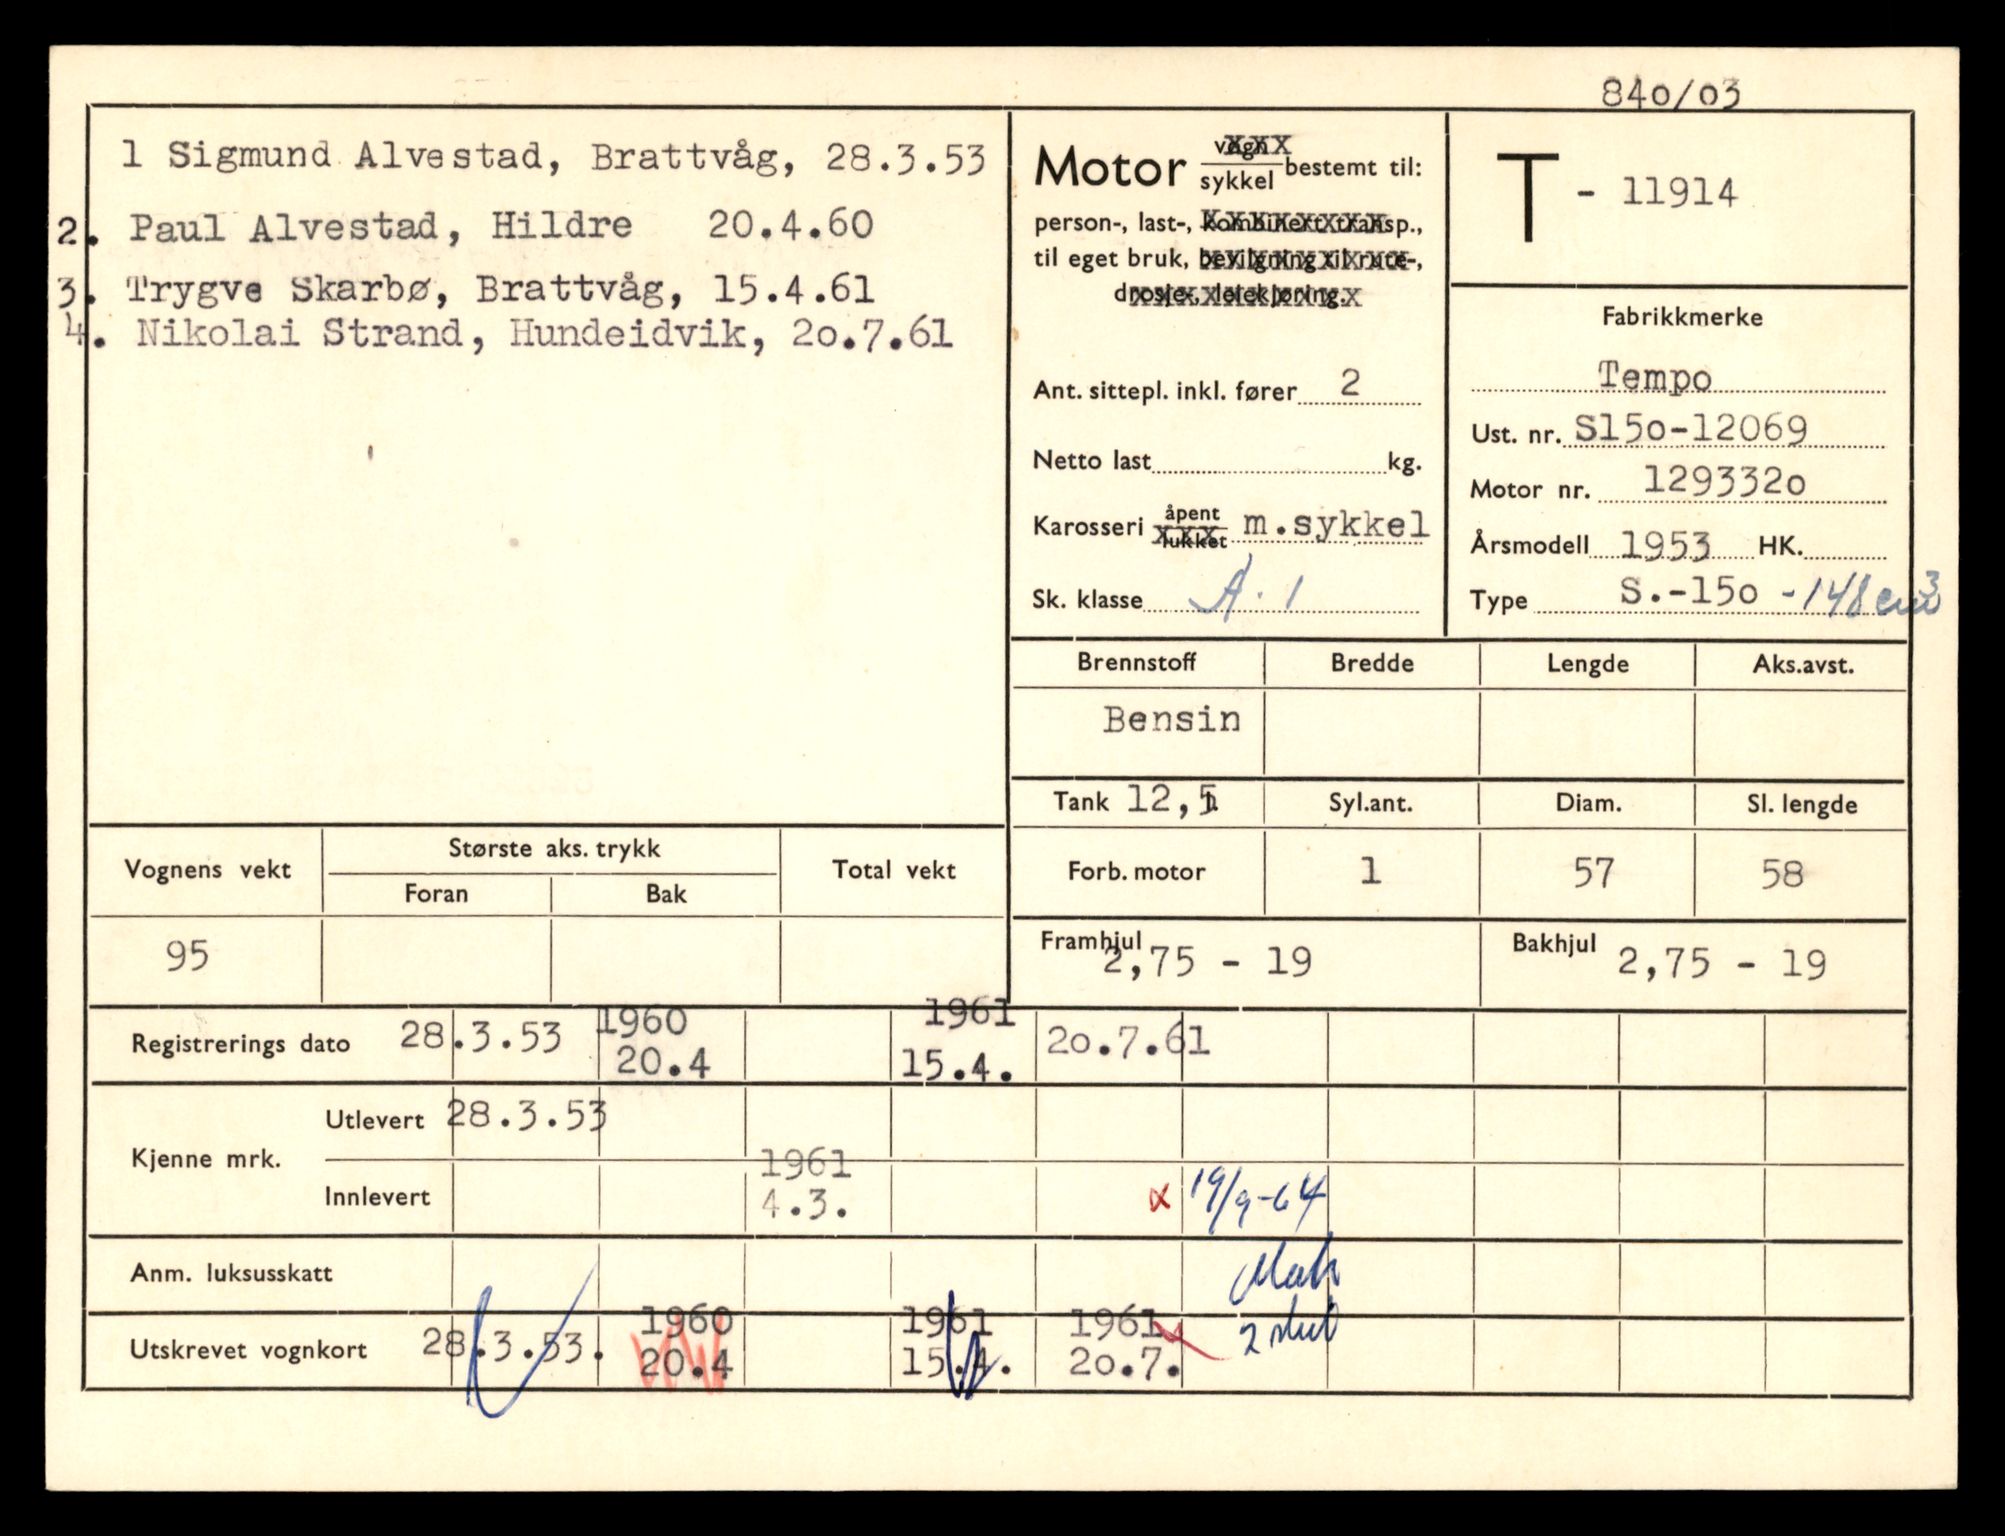 840/03
1 Sigmund Alvestad, Brattvåg, 28.3.53
2. Paul Alvestad, Hildre 20.4.60
3. Trygve Skarbø, Brattvåg, 15.4.61
4. Nikolai Strand, Hundeidvik, 2o.7.61
Motor vogn/sykkel bestemt til:
person-, last-, kombinert transp.,
til eget bruk, bevilgning til rute-,
drosje-, leiekjøring.
Ant. sittepl. inkl. fører 2
Netto last kg.
Karosseri åpent/lukket m.sykkel
Sk. klasse A. 1
T - 11914
Fabrikkmerke
Tempo
Ust. nr. S15o-12069
Motor nr. 129332o
Årsmodell 1953 HK.
Type S.-15o -148 cm3
Brennstoff Bredde Lengde Aks.avst.
Bensin
Tank 12,5 l. Syl.ant. Diam. Sl. lengde
Forb. motor 1 57 58
Framhjul 2,75 - 19 Bakhjul 2,75 - 19
Vognens vekt Største aks. trykk Total vekt
Foran Bak
95
Registrerings dato 28.3.53 1960 20.4 1961 15.4. 2o.7.61
Kjenne mrk. Utlevert 28.3.53
Innlevert 1961 4.3. x 19/9-64
Anm. luksusskatt
Utskrevet vognkort 28.3.53. 1960 20.4 1961 15.4. 1961 2o.7.